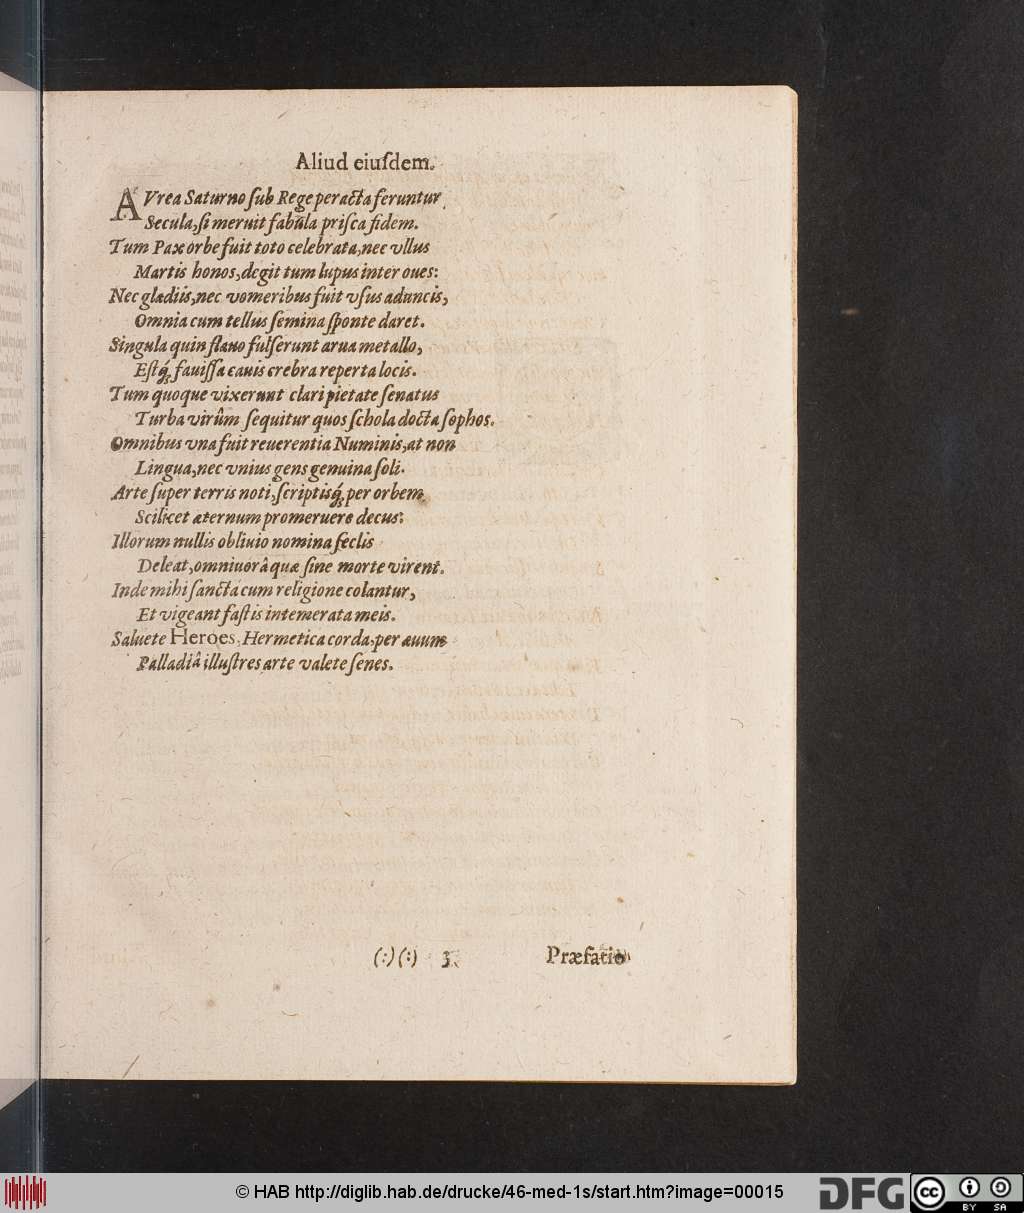 Aliud eiuſdem.
AVrea Saturno ſub Rege peracta feruntur
Secula, ſi meruit fabula priſca fidem.
Tum Pax orbe fuit toto celebrata, nec vllus
Martis honos, degit tum lupus inter oues:
Nec glædiis, nec vomeribus fuit vſus aduncis,
Omnia cum tellus ſemina ſponte daret.
Singula quin flauo fulſerunt arua metallo,
Eſtq́; fauiſſa cauis crebra reperta locis.
Tum quoque vixerunt clari pietate ſenatus
Turba virûm ſequitur quos ſchola docta ſophos.
Omnibus vna fuit reuerentia Numinis, at non
Lingua, nec vnius gens genuina ſoli.
Arte ſuper terris noti, ſcriptisq́; per orbem
Scilicet æternum promeruere decus:
Illorum nullis obliuio nomina ſeclis
Deleat, omniuorâ quæ ſine morte virent.
Inde mihi ſancta cum religione colantur,
Et vigeant faſtis intemerata meis.
Saluete Heroës, Hermetica corda, per æuum
Palladiâ illuſtres arte valete ſenes.
(:)(:) 3
Præfatio
© HAB http://diglib.hab.de/drucke/46-med-1s/start.htm?image=00015
DFG
cc BY SA